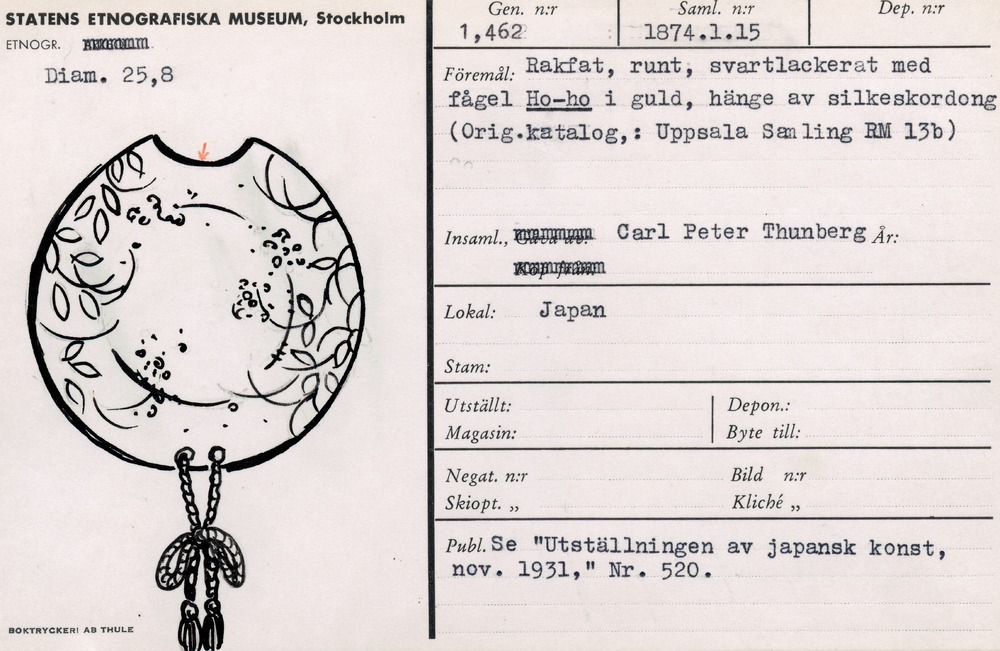 STATENS ETNOGRAFISKA MUSEUM, Stockholm
ETNOGR.
Diam. 25,8
BOKTRYCKERI AB THULE
Gen. n:r Saml. n:r Dep. n:r
1,462 1874.1.15
Föremål: Rakfat, runt, svartlackerat med
fågel Ho-ho i guld, hänge av silkeskordong
(Orig.katalog,: Uppsala Samling RM 13b)
Insaml., Gåva av: Carl Peter Thunberg År:
Köp från
Lokal: Japan
Stam:
Utställt: Depon.:
Magasin: Byte till:
Negat. n:r Bild n:r
Skiopt. „ Kliché „
Publ. Se "Utställningen av japansk konst,
nov. 1931," Nr. 520.